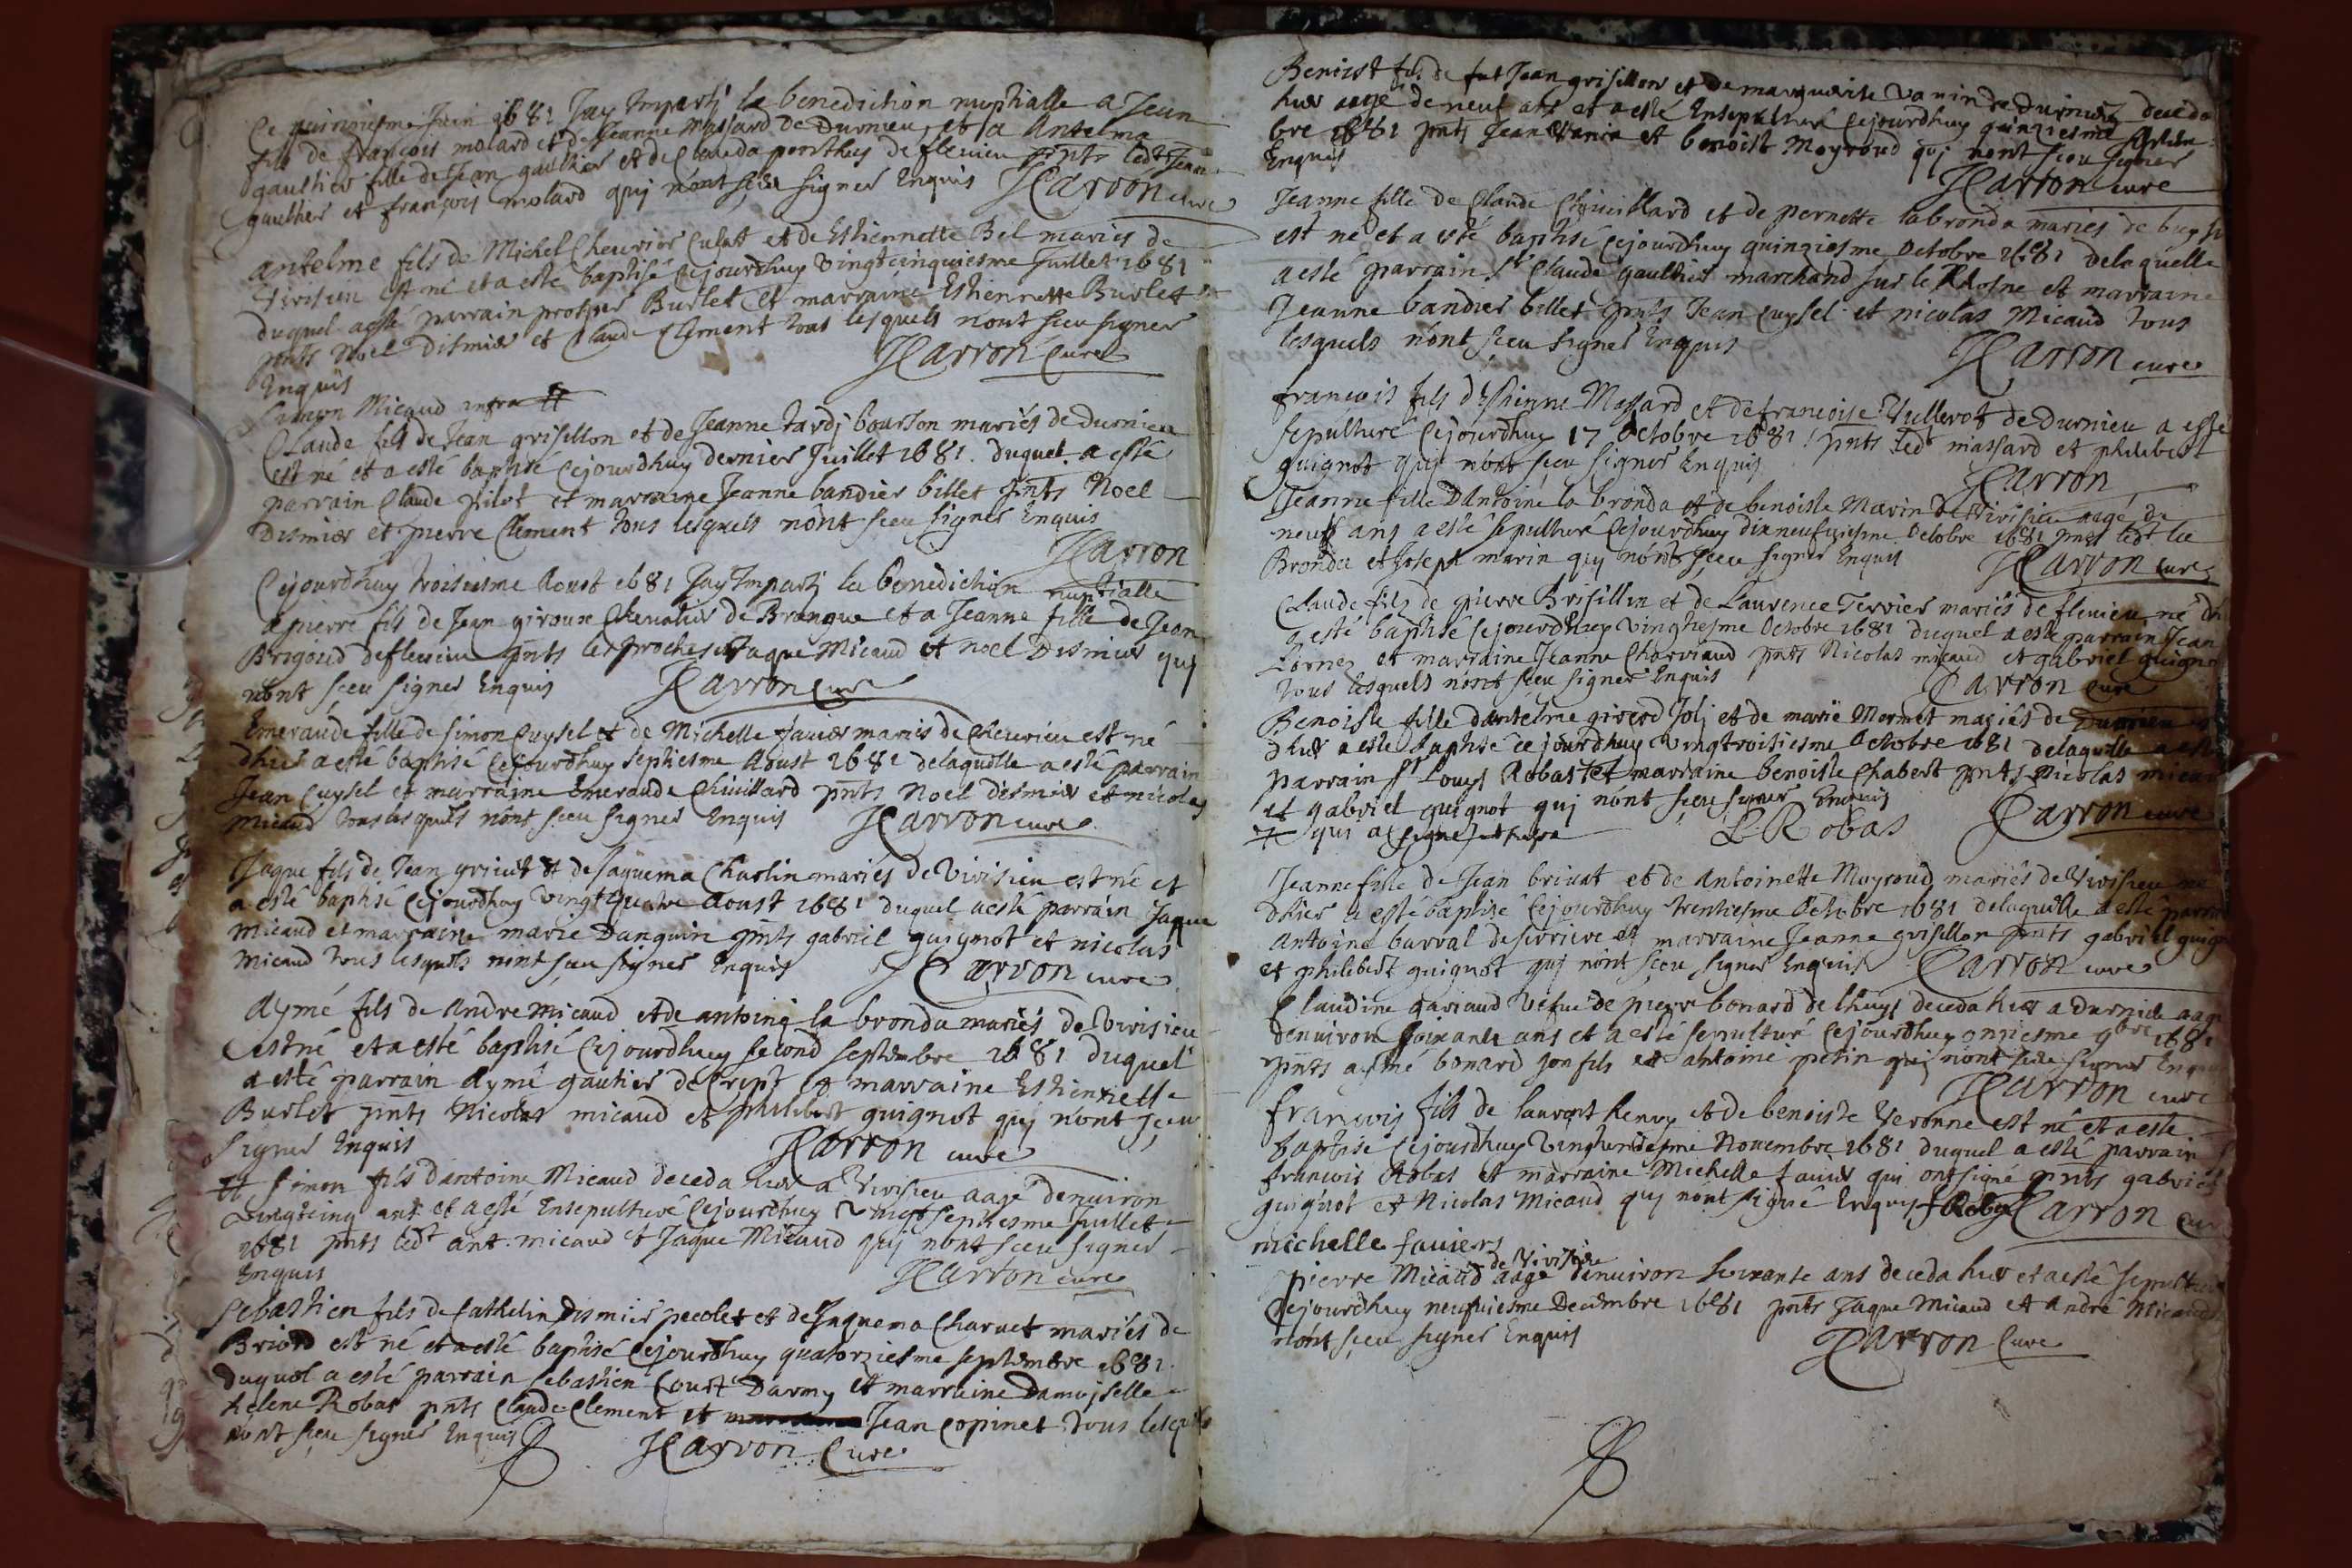 Ce quinziesme Juin 1681 Jay Imparti la benediction nuptialle a Jean
fils de françois molard et de Jeanne Massard de Durnieu et a Antelma
gaultier fille de Jean gaultier et de Clauda ponthus de flevieu pnts ledt Jean
gaultier et françois molard quj nont sceu signer Enquis JCarron curé
Antelme fils de Michel Chevrier Culat et de Esthiennette Bel mariés de
Virisieu est né et a esté baptisé Cejourdhuy Vingtcinquiesme Juillet 1681
duquel a esté parrain prosper Burlet et marraine Esthiennette Burlet
pnts Noel Dismier et Claude Clement tous lesquels nont sceu signer
Enquis JCarron Curé
Simon Micaud infra
Claude fils de Jean grisillon et de Jeanne tardj bourson mariés de Durnieu
est né et a esté baptisé Cejourdhuy dernier Juillet 1681. duquel a esté
parrain Claude pilot et marraine Jeanne bandier billet pnts Noel
Dismier et pierre Clement tous lesquels nont sceu signer Enquis
JCarron
Cejourdhuy troisiesme Aoust 1681 Jay Imparti la benediction nuptialle
a pierre fils de Jean giroux Chevalier de Brangue et a Jeanne fille de Jean
Brigoud de flevieu pnts les proches et Jaque Micaud et noel Dismier quj
nont sceu signer Enquis JCarron Curé
Emeraude fille de simon Cuysel et de Michelle favier mariés de Chevrieu est né
dhier a esté baptisé Cejourdhuy septiesme Aoust 1681 delaquelle a esté parrain
Jean Cuysel et marraine Emeraude Chivillard pnts Noel dismier et nicolas
micaud tous lesquels nont sceu signer Enquis JCarron curé
Jaque fils de Jean et de Jaquema Charlin mariés de Virisieu est né et
a esté baptisé Cejourdhuy vingtquatre Aoust 1681 duquel a esté parrain Jaque
micaud et marraine marie Danguin pnts gabriel guignot et nicolas
Micaud tous lesquels nont sceu signer Enquis JCarron curé
Aymé fils de Andre Micaud et de antoine la bronda mariés de Virisieu
est né et a esté baptisé Cejourdhuy second septembre 1681 duquel
a esté parrain Aymé gautier de Crept et marraine Esthiennette
Burlet pnts Nicolas micaud et philibert guignot quj nont sceu
signer Enquis JCarron curé
Simon fils dantoine Micaud deceda hier a Virisieu aagé denviron
Vingtcinq ans et a esté Ensepulturé Cejourdhuy Vingtseptiesme Juillet
1681 pnts ledt ant. micaud et Jaque Micaud quj nont sceu signer
Enquis JCarron curé
Sebastien fils de Cathelin Dismier pecolet et de Jaquema Charvet mariés de
Briord est né et a esté baptisé Cejourdhuy quatorziesme septembre 1681.
duquel a esté parrain sebastien Court Darmy et marraine Damoiselle
helene Robas pnts Claude Clement et Jean Copinet tous lesquels
nont sceu signer Enquis JCarron Curé
Benoist fils de fut Jean grisillon et de marguerite Vanin de Durnieu deceda
hier aagé de neuf ans et a esté Ensepulturé Cejourdhuy quinziesme septem-
bre 1681 pnts Jean Vanin et benoist Moyroud quj nont sceu signer
Enquis JCarron curé
Jeanne fille de Claude Chivillard et de pernette labronda mariés de
est né et a esté baptisé Cejourdhuy quinziesme Octobre 1681 delaquelle
a esté parrain Sr Claude gaultier marchand sur le Rhosne et marraine
Jeanne bandier billet pnts Jean Cuysel et nicolas Micaud tous
lesquels nont sceu signer Enquis JCarron curé
françois fils dEstienne Massard et de françoise Vullerot de Durnieu a esté
sepulturé Cejourdhuy 17 Octobre 1681 pnts ledt massard et philibert
guignot quj nont sceu signer Enquis JCarron
Jeanne fille dAntoine la bronda et de benoiste Marin de Virisieu aagé de
neuf ans a esté sepulturé Cejourdhuy dixneufviesme Octobre 1681 pnts ledt la
Bronda et Joseph marin quj nont sceu signer Enquis JCarron curé
Claude fils de pierre Brisillin et de Laurence Terrier mariés de flevieu né
a esté baptisé Cejourdhuy vingtiesme Octobre 1681 duquel a esté parrain Jean
Larnez et marraine Jeanne Charviaud pnts Nicolas micaud et gabriel guignot
tous lesquels nont sceu signer Enquis JCarron curé
Benoiste fille dantelme girerd Jolj et de marie Mermet mariés de Durnieu
dhier a esté baptisé cejourdhuy vingtroisiesme Octobre 1681 delaquelle a esté
parrain Sr Louys Robas et marraine benoiste Chabert pnts Nicolas micaud
et gabriel guignot quj nont sceu signer Enquis
qui a signé LRobas JCarron curé
Jeanne fille de Jean brivat et de Antoinette Moyroud mariés de Virisieu né
dhier a esté baptisé Cejourdhuy trentiesme Octobre 1681 delaquelle a esté parrain
Antoine barral de serriere et marraine Jeanne grisillon pnts gabriel guignot
et philibert guignot quj nont sceu signer Enquis JCarron curé
Claudine garraud vefve de pierre bonard de lhuys deceda hier a Durnieu aagé
denviron soixante ans et a esté sepulturé Cejourdhuy onziesme 9bre 1681
pnts aymé bonard son fils et antoine petin quj nont sceu signer Enquis
JCarron curé
françois fils de laurent henry et de benoiste Veronne est né et a esté
baptisé Cejourdhuy novembre 1681 duquel a esté parrain
francois Robas et marraine Michelle favier qui ont signé pnts gabriel
guignot et Nicolas Micaud quj nont signé Enquis fRobas JCarron curé
michelle faviers
de Virisieu
pierre Micaud aagé denviron soixante ans deceda hier et a esté sepulturé
Cejourdhuy neufviesme Decembre 1681 pnts Jaque Micaud et André Micaud
nont sceu signer Enquis JCarron Curé